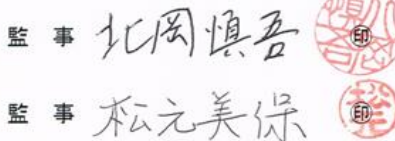 監事 北岡慎吾 ㊞
監事 松元美保 ㊞